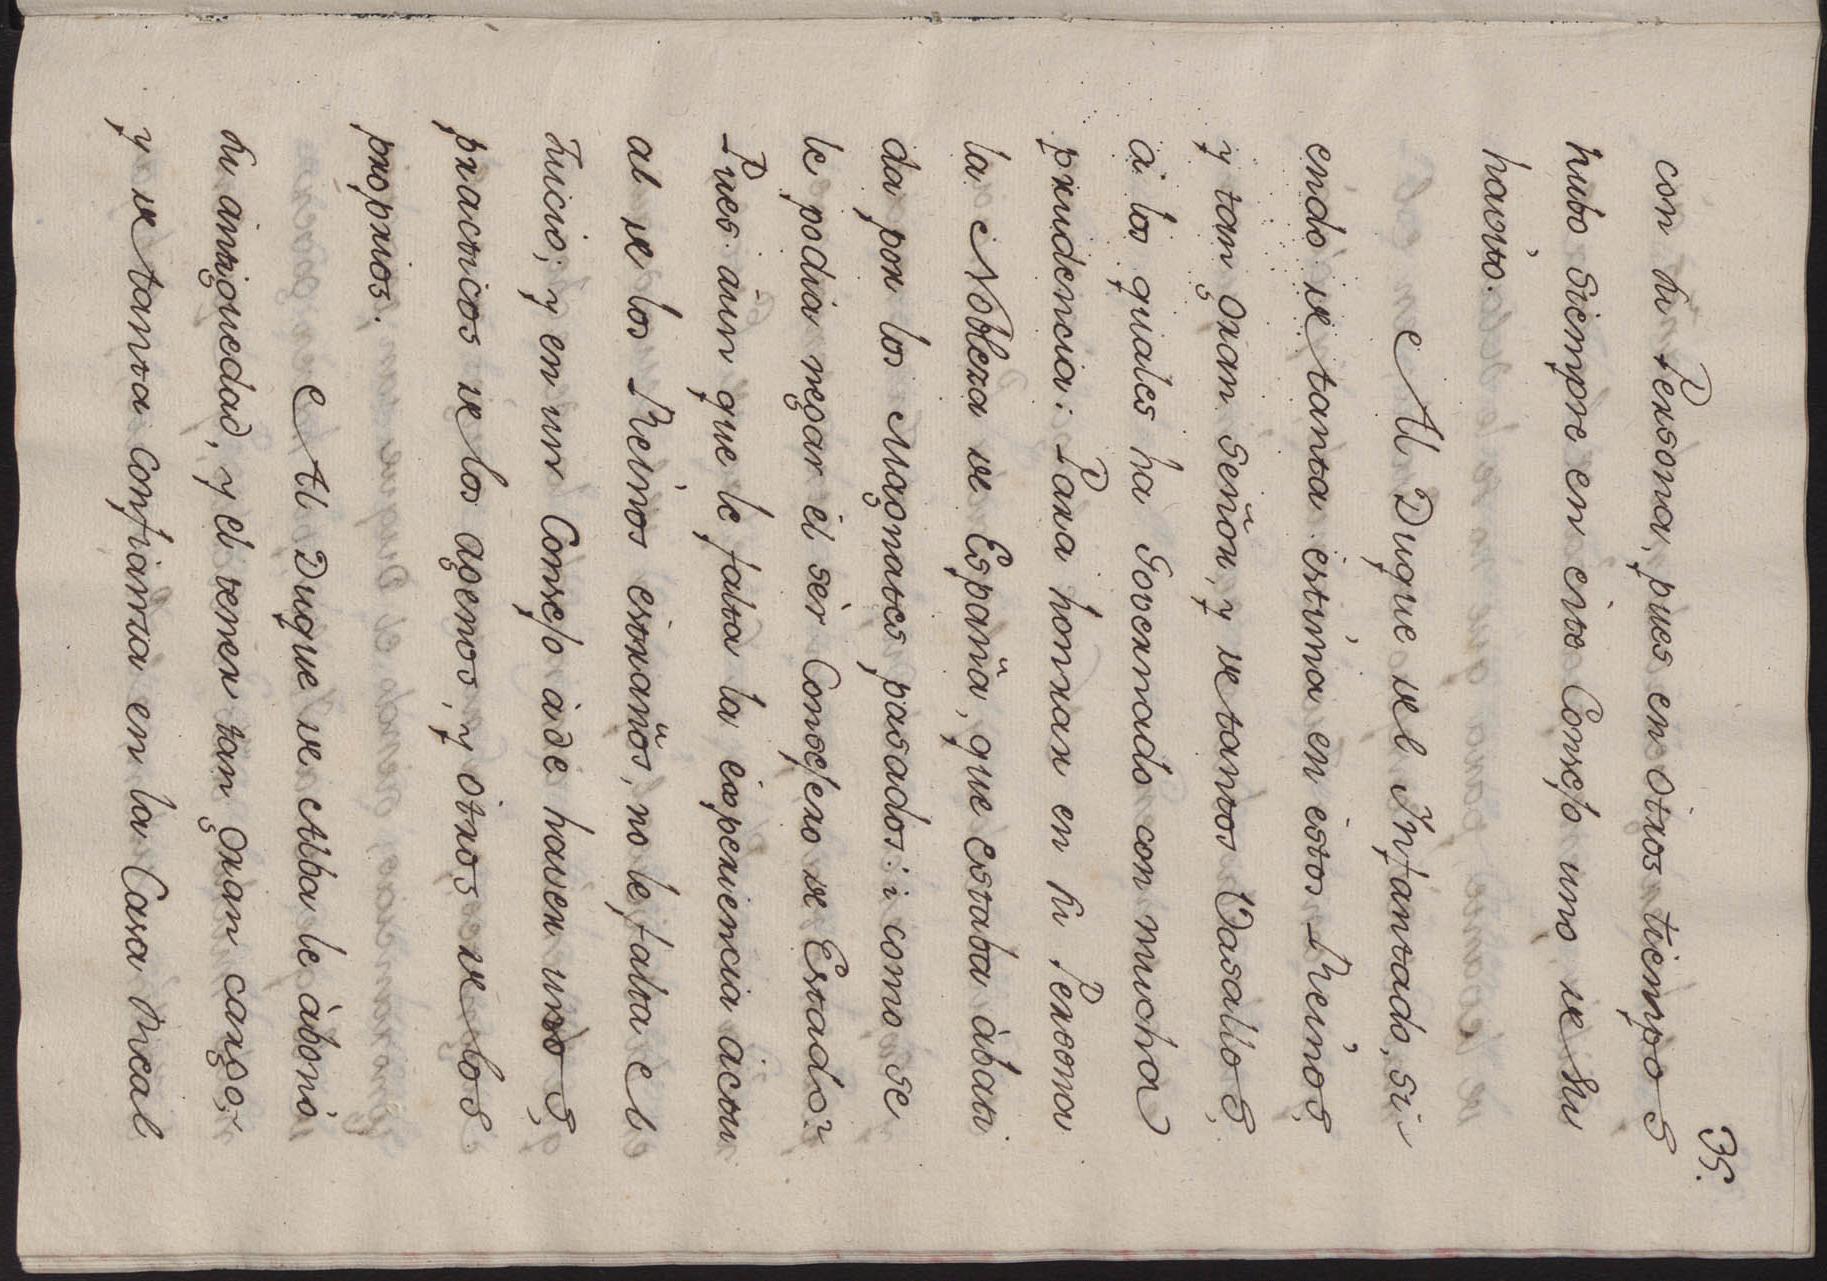 35.
con su Persona, pues en otros tiempos
hubo siempre en este Consejo uno de su
havito.
Al Duque del Infantado, si-
endo de tanta estima en estos Reinos,
y tan gran señor, y de tantos Vasallos,
à los quales ha Governado con mucha
prudencia: Para honrar en su Persona
la Nobleza de España, que estaba àban
da por los Magnates pasados: i como se
le podia negar èl sèr Consejero de Estado?
Pues àun que le faltu la experiencia actu
al de los Reinos estraños, no le falta el
Juicio; y en un Consejo àde haver unos,
practicos de los agenos, y òtros de los
proprios.
Al Duque de Alba le àbonò
su àntiguedad, y èl tener tan gran cargo,
y de tanta confianza en la Casa Real